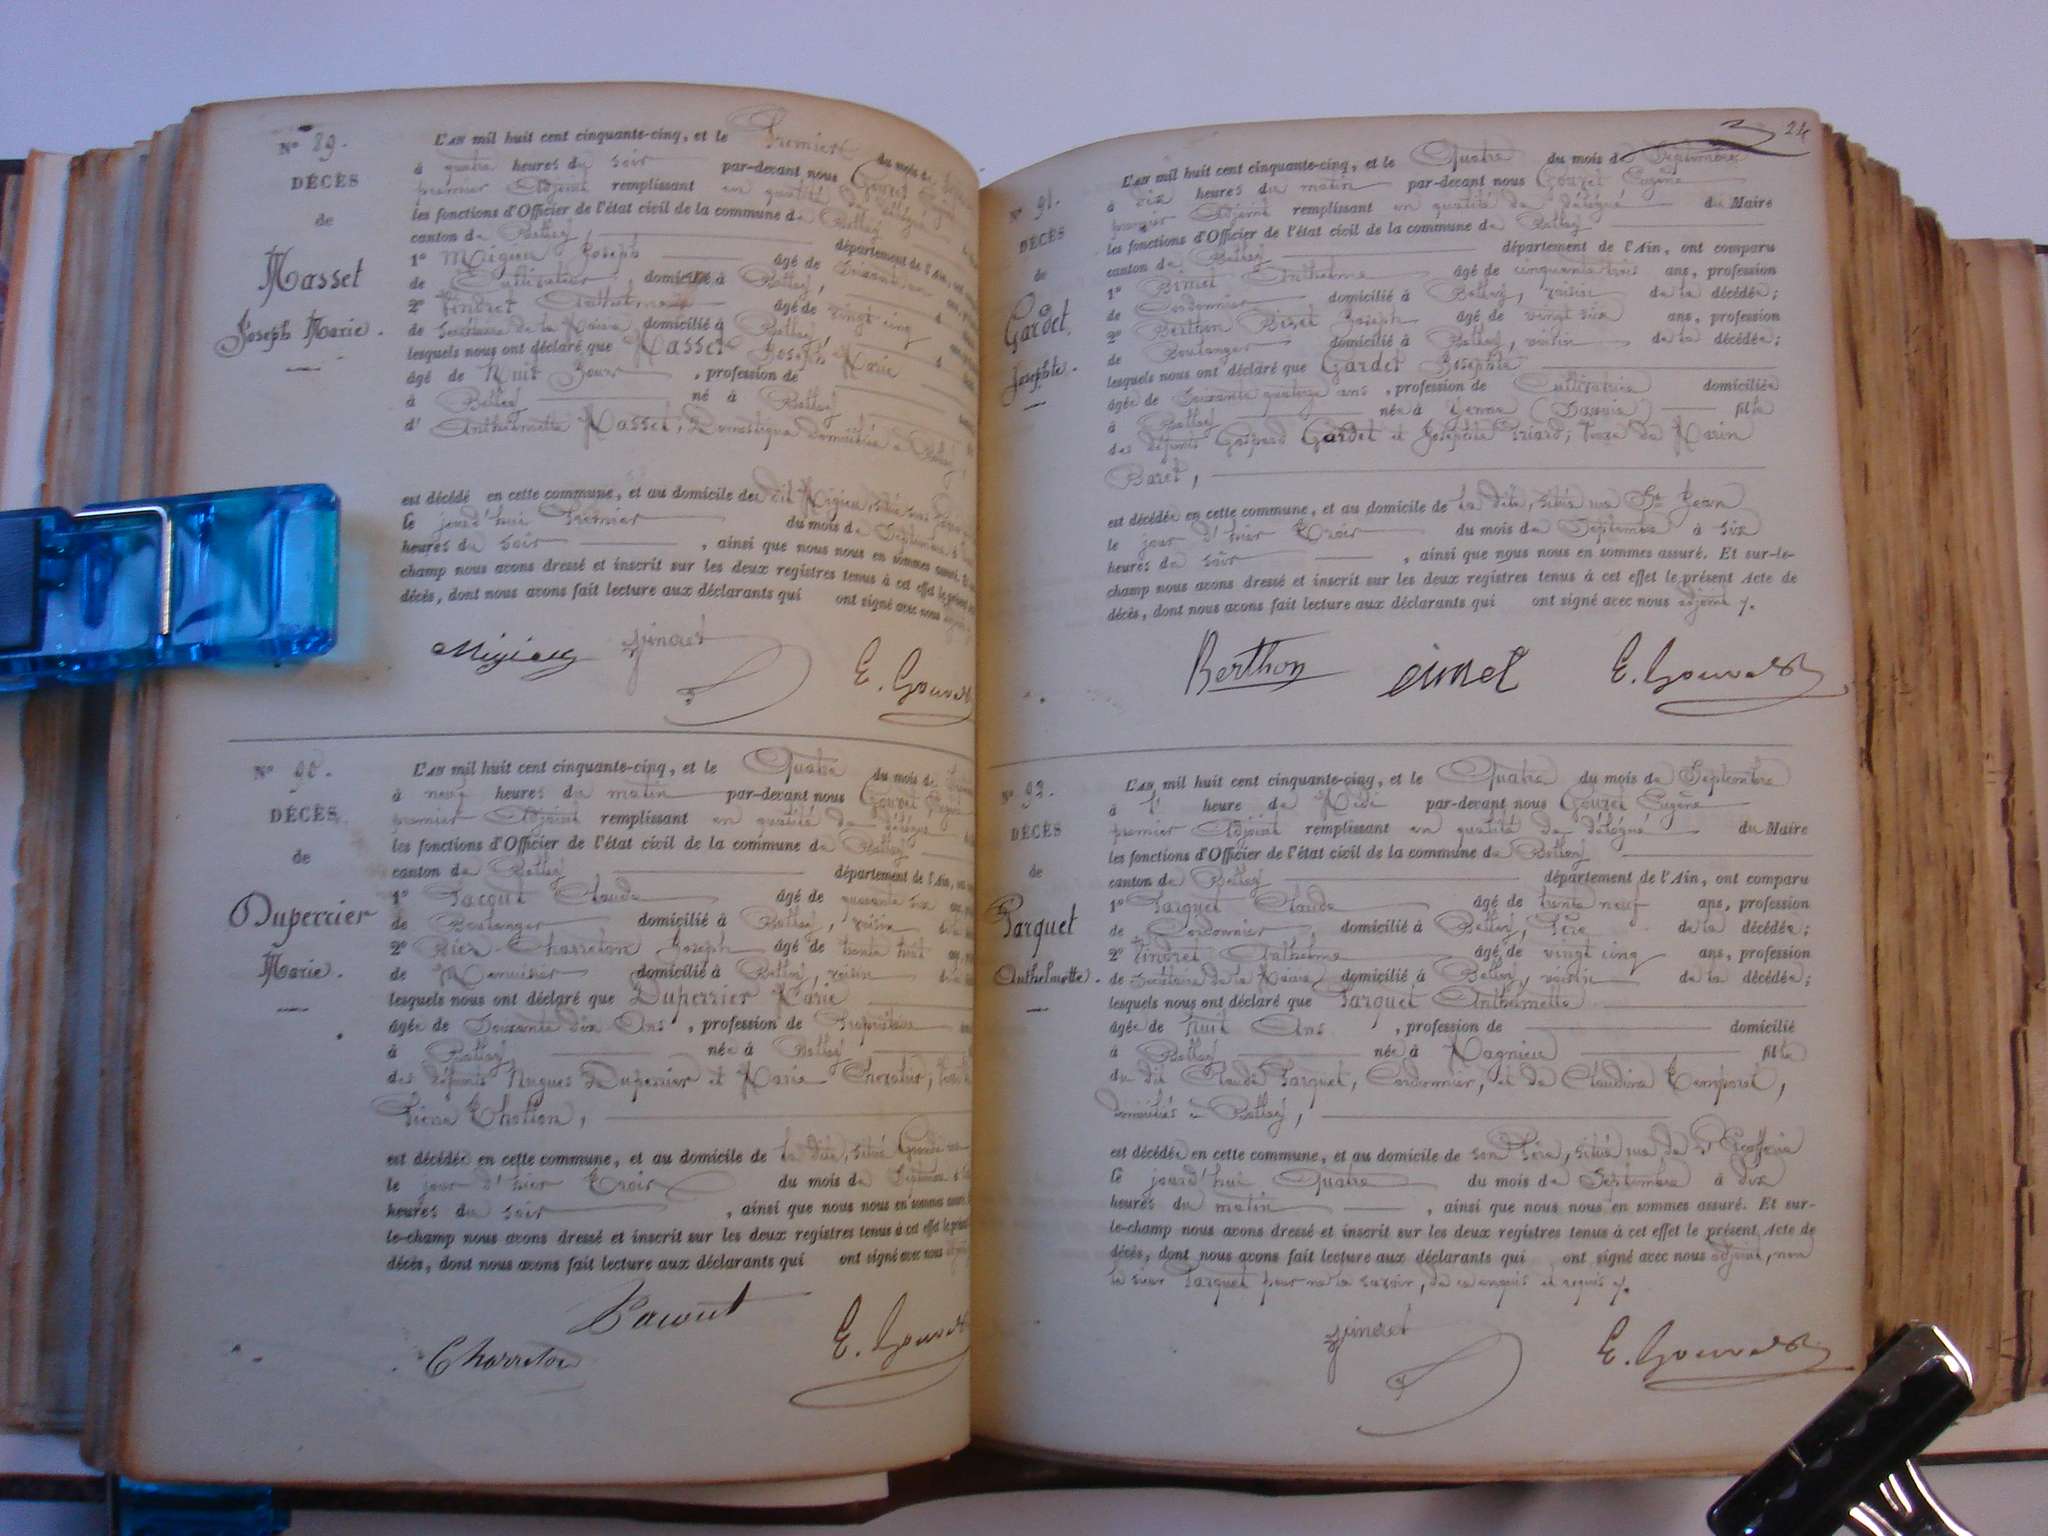 N° 89.
DÉCÈS
de
Masset
Joseph Marie.
L'AN mil huit cent cinquante-cinq, et le Premier du mois de
à quatre heures du soir par-devant nous Gouvet
premier Adjoint remplissant en qualité de délégué
les fonctions d'Officier de l'état civil de la commune de Belley
canton de Belley département de l'Ain,
1° Migieu Joseph âgé de
de Cultivateur, domicilié à Belley,
2° Pindret Anthelme âgé de vingt cinq
de Secrétaire de la Mairie domicilié à Belley,
lesquels nous ont déclaré que Masset Joseph Marie
âgé de Huit Jours, profession de
à Belley né à Belley
d'Anthelmette Masset, Domestique domiciliée à Belley,
est décédé en cette commune, et au domicile de dit Migieu, située rue
le jourd'hui Premier du mois de Septembre à
heures du soir, ainsi que nous nous en sommes assuré.
champ nous avons dressé et inscrit sur les deux registres tenus à cet effet le présent
décès, dont nous avons fait lecture aux déclarants qui ont signé avec nous
Migieu Pindret E. Gouvet
N° 90.
DÉCÈS
de
Duperrier
Marie.
L'AN mil huit cent cinquante-cinq, et le Quatre du mois de
à neuf heures du matin par-devant nous Gouvet Eugène
premier Adjoint remplissant en qualité de délégué
les fonctions d'Officier de l'état civil de la commune de Belley
canton de Belley département de l'Ain,
1° Pacout Claude âgé de quarante six
de Boulanger domicilié à Belley, voisin
2° Charreton Joseph âgé de trente huit
de Menuisier domicilié à Belley, voisin
lesquels nous ont déclaré que Duperrier Marie
âgée de Soixante dix Ans, profession de Propriétaire
à Belley née à Belley
des défunts Hugues Duperrier et Marie
est décédée en cette commune, et au domicile de la dite, située Grande rue
le jour d'hier Trois du mois de Septembre à
heures du soir, ainsi que nous nous en sommes assuré.
le-champ nous avons dressé et inscrit sur les deux registres tenus à cet effet le présent
décès, dont nous avons fait lecture aux déclarants qui ont signé avec nous
Pacout
Charreton E. Gouvet
24
N° 91.
DÉCÈS
de
Gardet
Josephte.
L'AN mil huit cent cinquante-cinq, et le Quatre du mois de Septembre
à dix heures du matin par-devant nous Gouvet Eugène
premier Adjoint remplissant en qualité de délégué du Maire
les fonctions d'Officier de l'état civil de la commune de Belley
canton de Belley département de l'Ain, ont comparu
1° Anthelme âgé de cinquante trois ans, profession
de Cordonnier domicilié à Belley, voisin de la décédée;
2° Berthon Joseph âgé de vingt six ans, profession
de Boulanger domicilié à Belley, voisin de la décédée;
lesquels nous ont déclaré que Gardet Josephte
âgée de Soixante quatorze ans, profession de Cultivatrice domiciliée
à Belley née à Yenne (Savoie) fille
des défunts Gaspard Gardet et Josephte Priard; Veuve de Marin
Baret,
est décédée en cette commune, et au domicile de la dite, située rue St Jean
le jour d'hier Trois du mois de Septembre à six
heures du soir, ainsi que nous nous en sommes assuré. Et sur-le-
champ nous avons dressé et inscrit sur les deux registres tenus à cet effet le présent Acte de
décès, dont nous avons fait lecture aux déclarants qui ont signé avec nous adjoint /.
Berthon E. Gouvet
N° 92.
DÉCÈS
de
Parquet
Anthelmette.
L'AN mil huit cent cinquante-cinq, et le Quatre du mois de Septembre
à l' heure de Midi par-devant nous Gouvet Eugène
premier Adjoint remplissant en qualité de délégué du Maire
les fonctions d'Officier de l'état civil de la commune de Belley
canton de Belley département de l'Ain, ont comparu
1° Parquet Claude âgé de trente neuf ans, profession
de Cordonnier, domicilié à Belley, Père de la décédée;
2° Pindret Anthelme âgé de vingt cinq ans, profession
de Secrétaire de la Mairie domicilié à Belley, voisin de la décédée;
lesquels nous ont déclaré que Parquet Anthelmette
âgée de huit Ans, profession de domicilié
à Belley née à Magnieu fille
du dit Claude Parquet, Cordonnier, et de Claudine Temporel,
domiciliés à Belley,
est décédée en cette commune, et au domicile de son Père, située rue de
le jourd'hui Quatre du mois de Septembre à dix
heures du matin, ainsi que nous nous en sommes assuré. Et sur-
le-champ nous avons dressé et inscrit sur les deux registres tenus à cet effet le présent Acte de
décès, dont nous avons fait lecture aux déclarants qui ont signé avec nous adjoint, non
le sieur Parquet pour ne le savoir, de ce enquis et requis /.
Pindret E. Gouvet